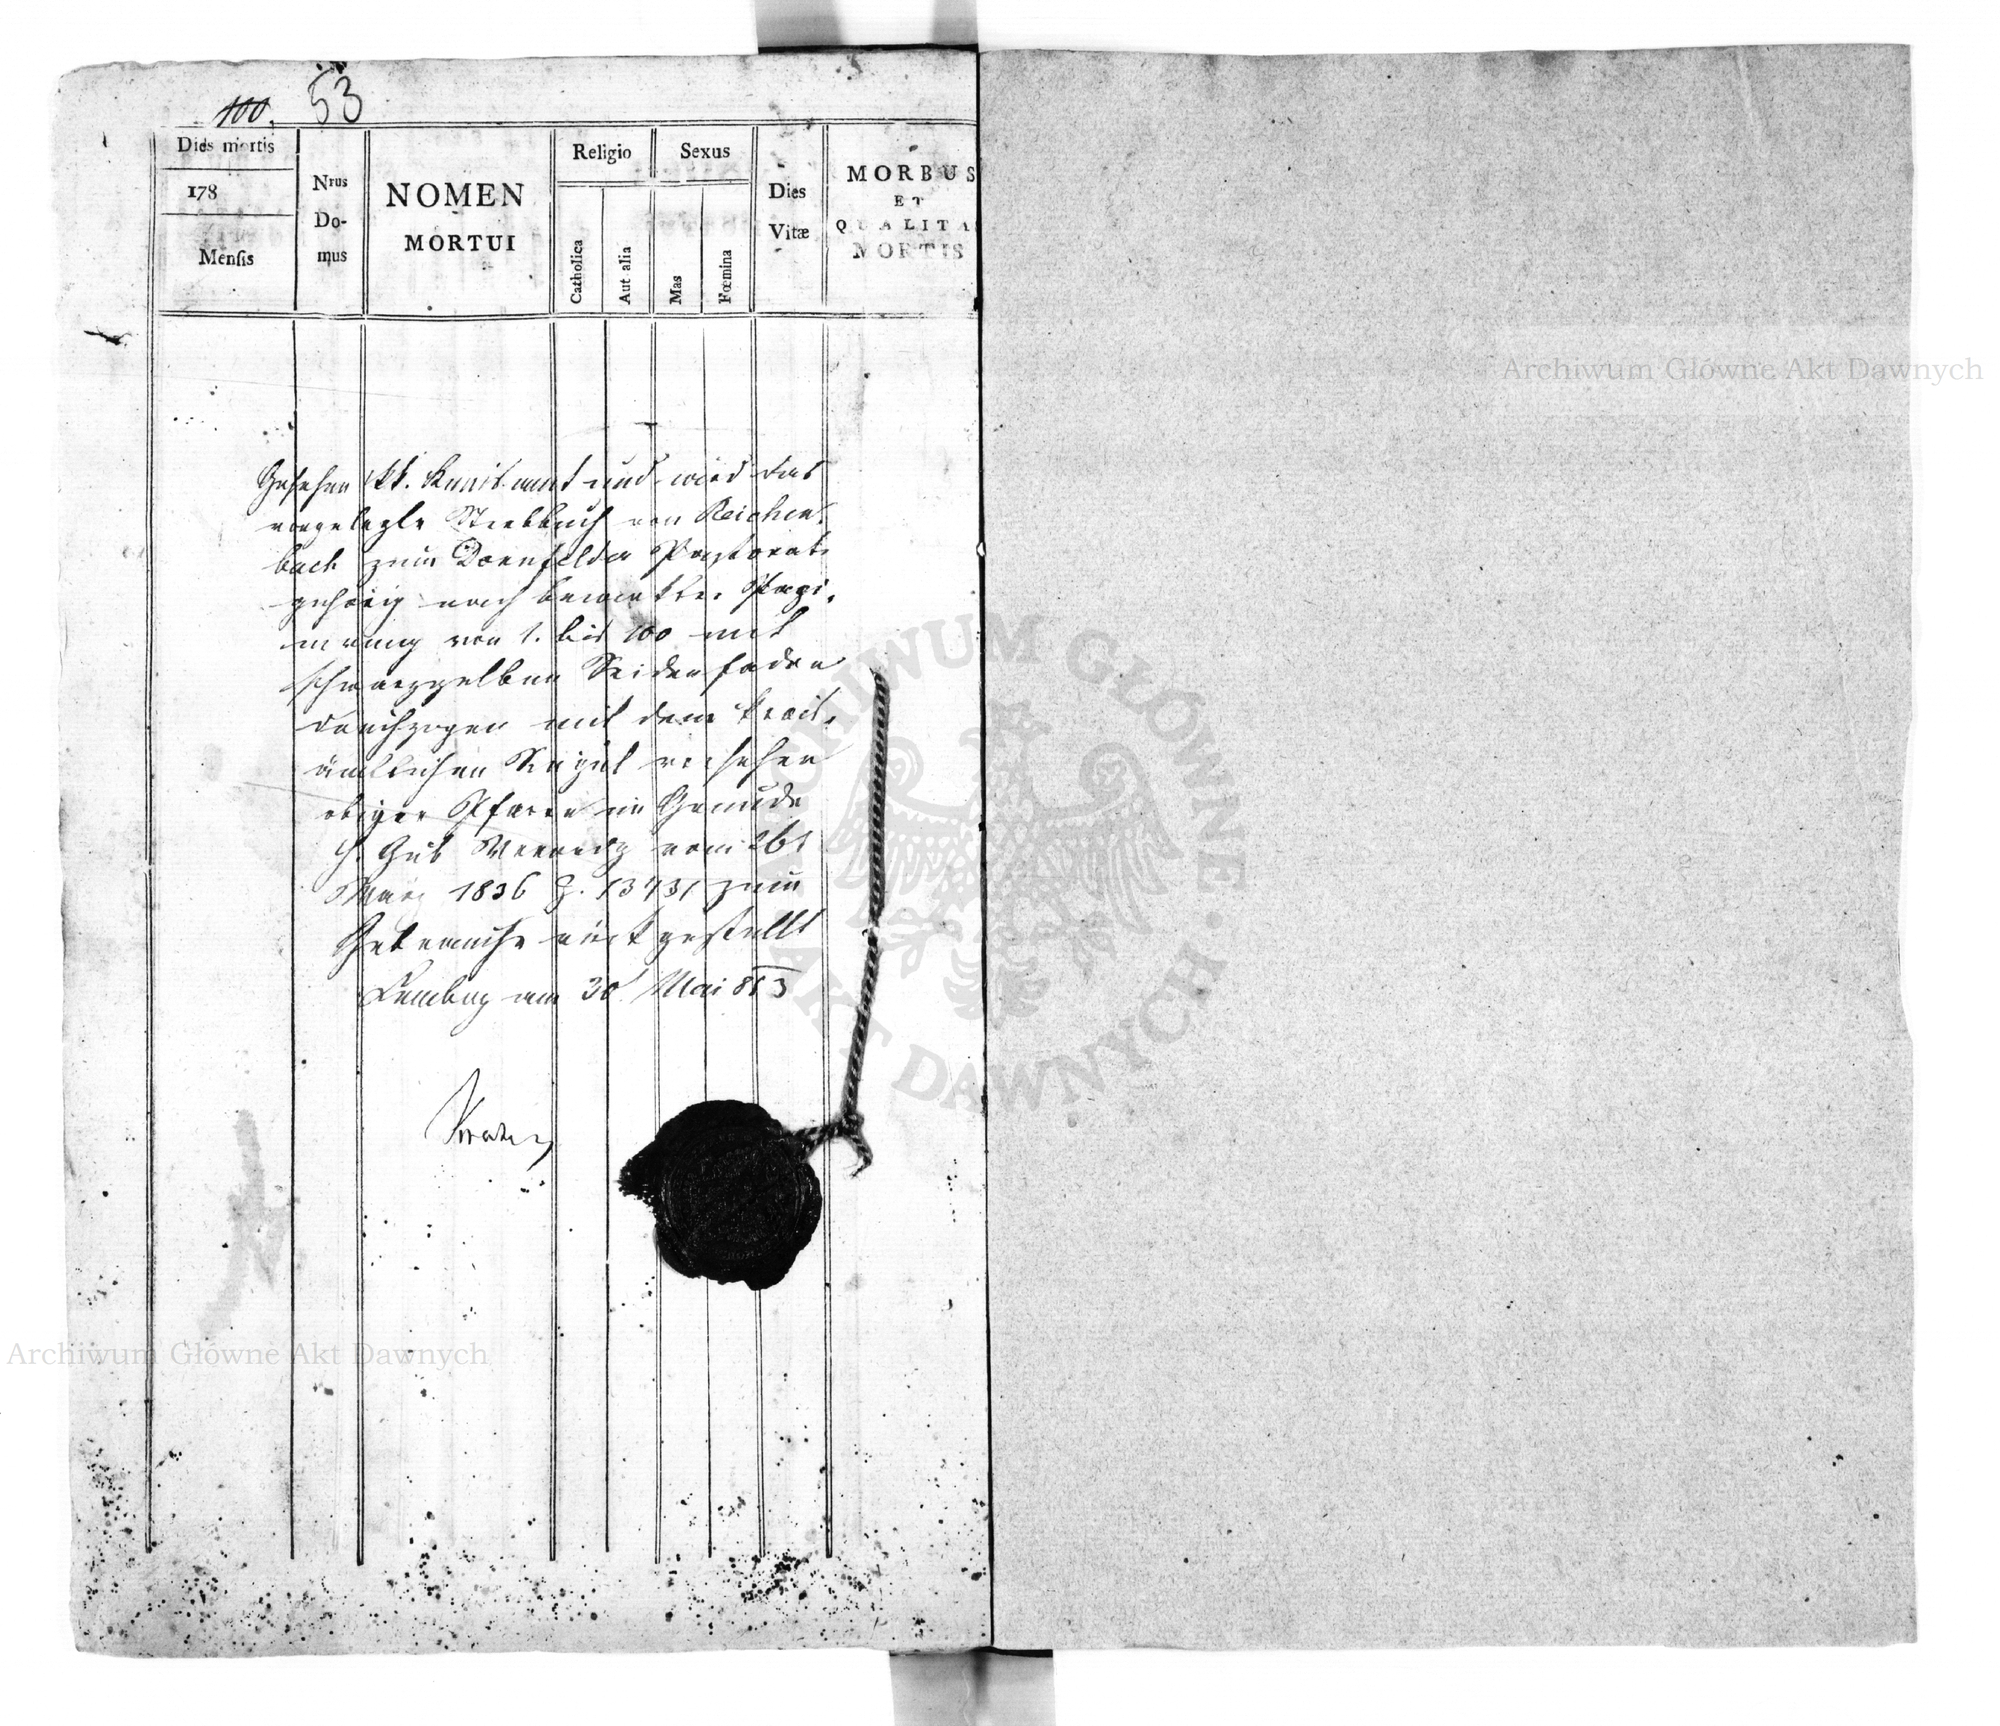 100. 53
Dies mortis
178
Mensis
Nrus
Do-
mus
NOMEN
MORTUI
Religio
Catholica
Aut alia
Sexus
Mas
Fœmina
Dies
Vitæ
MORBUS
ET
QUALITA
MORTIS
Gesehen kk. Kreisamt und wird das
vorgelegte Sterbbuch von Reichen-
bach zum Dornfelder Pastorate
gehörig nach bewirkter Pagi-
nirung von 1. bis 100 mit
schwarzgelben Seidenfaden
durchzogen mit dem kreis-
ämtlichen Siegel versehen
obiger Pfarre im
h. Gub vom 26t
März 1836 Z. 13431 zum
Gebrauche rückgestellt
Lemberg am 30 Mai 853
Archiwum Główne Akt Dawnych
Archiwum Główne Akt Dawnych
ARCHIWUM GŁÓWNE · AKT DAWNYCH